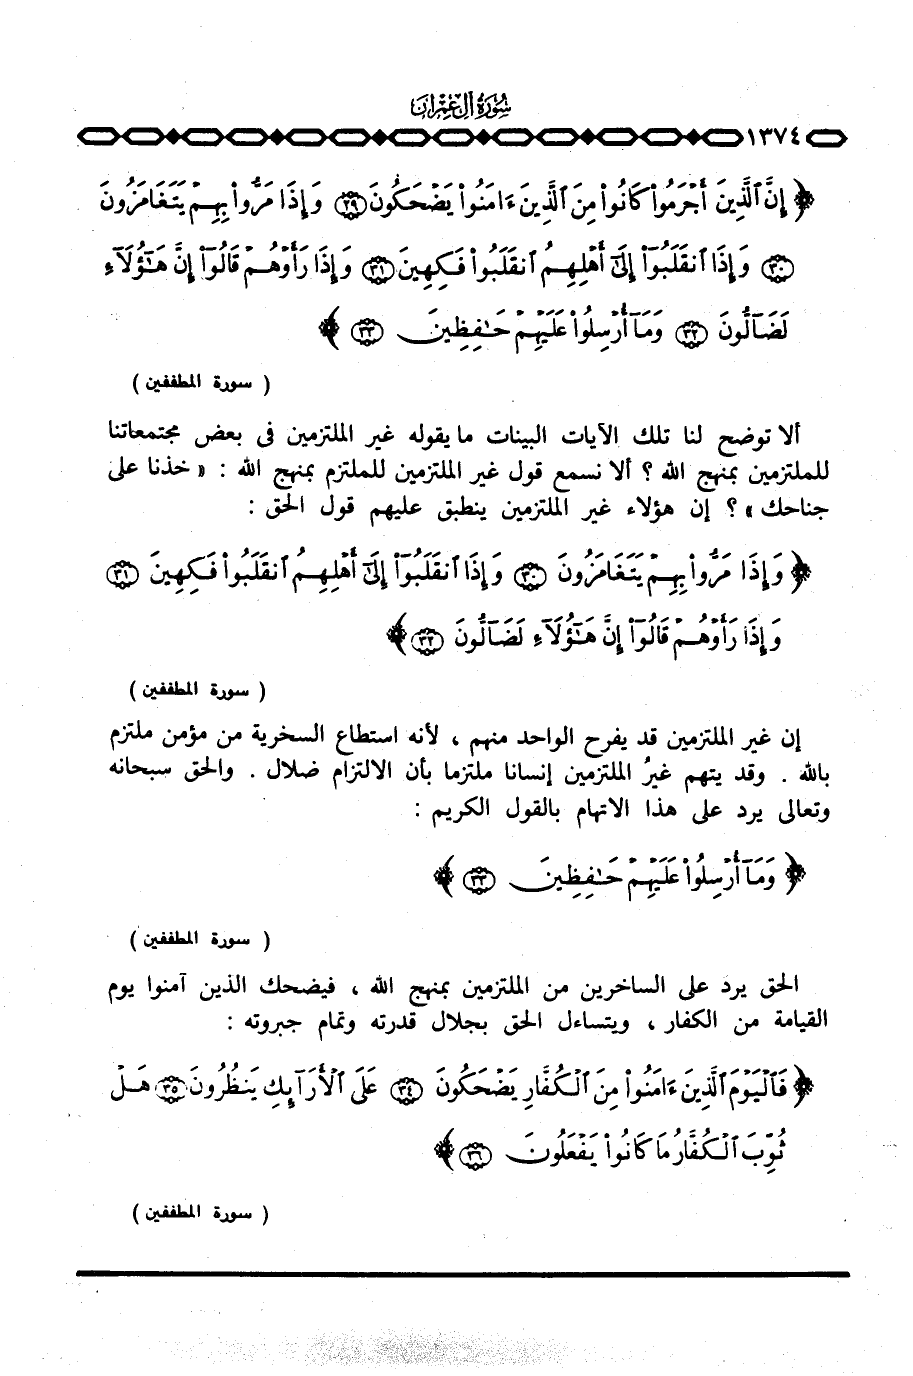 سُورَةُ آلِ عِمْرَانَ
١٣٧٤
﴿ إِنَّ ٱلَّذِينَ أَجْرَمُوا۟ كَانُوا۟ مِنَ ٱلَّذِينَ ءَامَنُوا۟ يَضْحَكُونَ ٢٩ وَإِذَا مَرُّوا۟ بِهِمْ يَتَغَامَزُونَ
٣٠ وَإِذَا ٱنقَلَبُوٓا۟ إِلَىٰٓ أَهْلِهِمُ ٱنقَلَبُوا۟ فَكِهِينَ ٣١ وَإِذَا رَأَوْهُمْ قَالُوٓا۟ إِنَّ هَـٰٓؤُلَآءِ
لَضَآلُّونَ ٣٢ وَمَآ أُرْسِلُوا۟ عَلَيْهِمْ حَـٰفِظِينَ ٣٣ ﴾
( سورة المطففين )
ألا توضح لنا تلك الآيات البينات ما يقوله غير الملتزمين فى بعض مجتمعاتنا
للملتزمين بمنهج الله ؟ ألا نسمع قول غير الملتزمين للملتزم بمنهج الله : « خذنا على
جناحك » ؟ إن هؤلاء غير الملتزمين ينطبق عليهم قول الحق :
﴿ وَإِذَا مَرُّوا۟ بِهِمْ يَتَغَامَزُونَ ٣٠ وَإِذَا ٱنقَلَبُوٓا۟ إِلَىٰٓ أَهْلِهِمُ ٱنقَلَبُوا۟ فَكِهِينَ ٣١
وَإِذَا رَأَوْهُمْ قَالُوٓا۟ إِنَّ هَـٰٓؤُلَآءِ لَضَآلُّونَ ٣٢ ﴾
( سورة المطففين )
إن غير الملتزمين قد يفرح الواحد منهم ، لأنه استطاع السخرية من مؤمن ملتزم
بالله . وقد يتهم غيرُ الملتزمين إنسانا ملتزما بأن الالتزام ضلال . والحق سبحانه
وتعالى يرد على هذا الاتهام بالقول الكريم :
﴿ وَمَآ أُرْسِلُوا۟ عَلَيْهِمْ حَـٰفِظِينَ ٣٣ ﴾
( سورة المطففين )
الحق يرد على الساخرين من الملتزمين بمنهج الله ، فيضحك الذين آمنوا يوم
القيامة من الكفار ، ويتساءل الحق بجلال قدرته وتمام جبروته :
﴿ فَٱلْيَوْمَ ٱلَّذِينَ ءَامَنُوا۟ مِنَ ٱلْكُفَّارِ يَضْحَكُونَ ٣٤ عَلَى ٱلْأَرَآئِكِ يَنظُرُونَ ٣٥ هَلْ
ثُوِّبَ ٱلْكُفَّارُ مَا كَانُوا۟ يَفْعَلُونَ ٣٦ ﴾
( سورة المطففين )